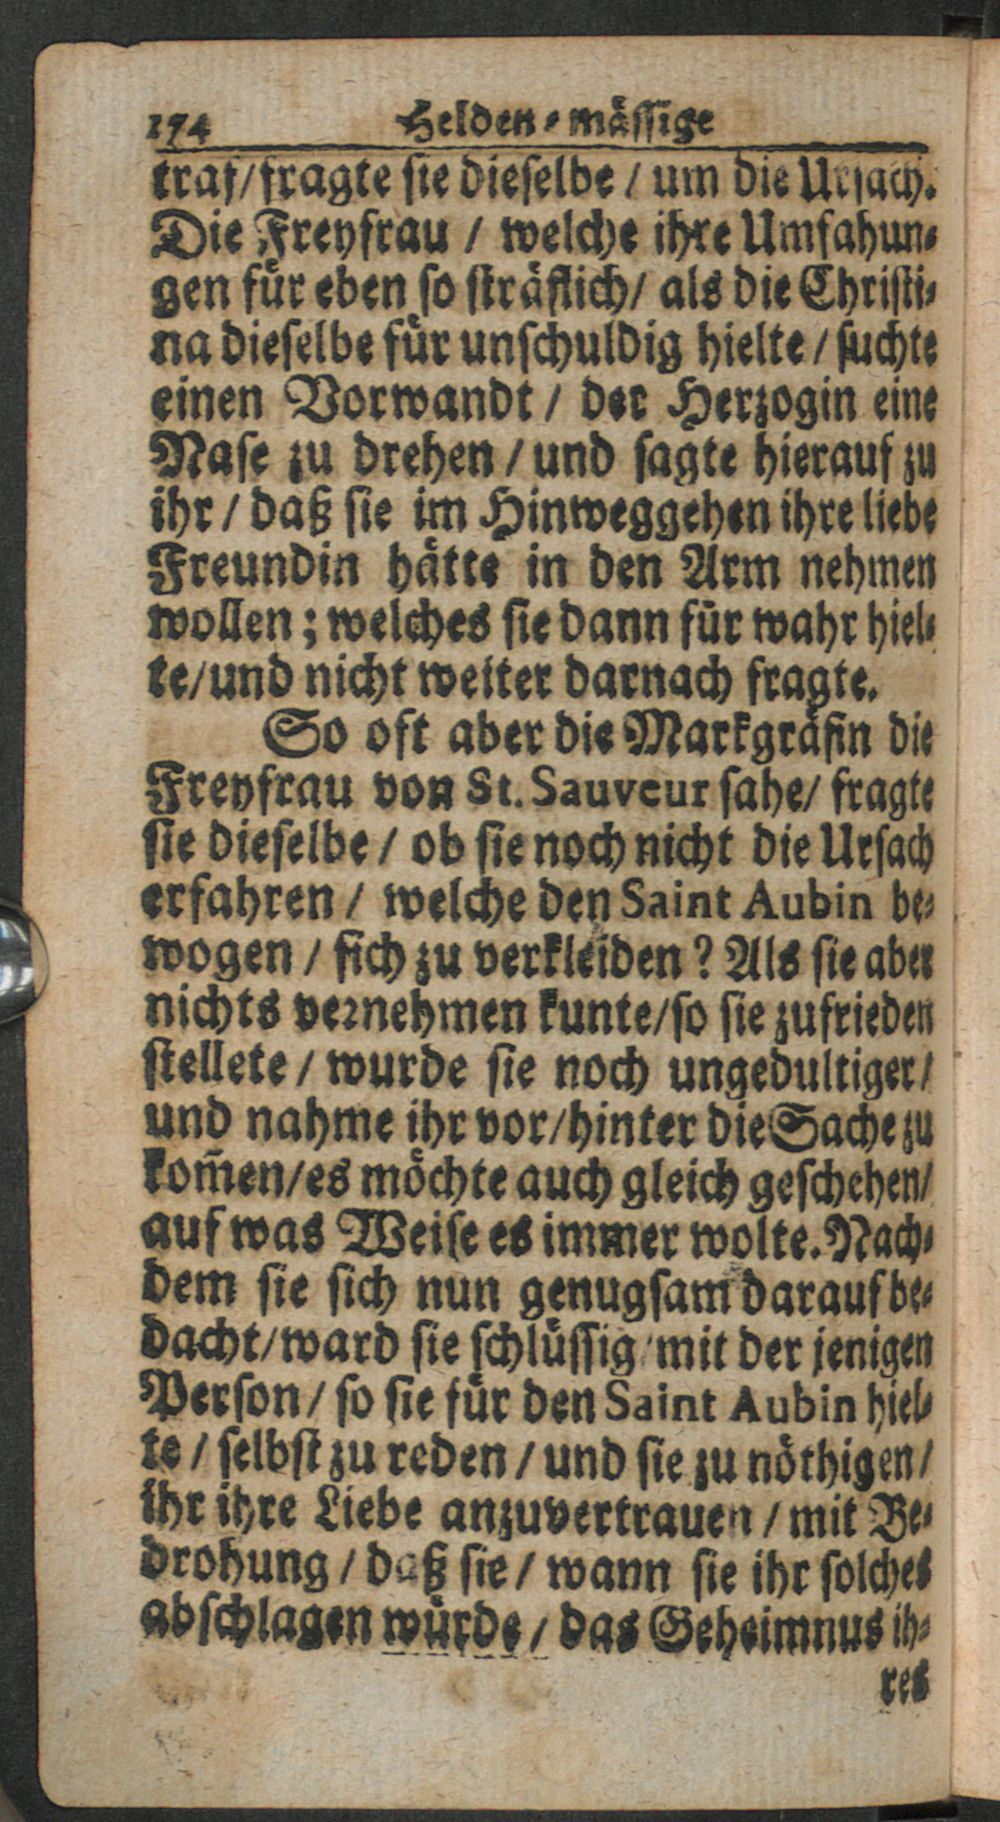 174 Helden-mässige
traf/fragte sie dieselbe / um die Ursach.
Die Freyfrau / welche ihre Umfahun-
gen für eben so sträflich/ als die Christi-
na dieselbe für unschuldig hielte / suchte
einen Vorwandt / der Herzogin eine
Nase zu drehen / und sagte hierauf zu
ihr / daß sie im Hinweggehen ihre liebe
Freundin hätte in den Arm nehmen
wollen; welches sie dann für wahr hiel-
te/und nicht weiter darnach fragte.
So oft aber die Markgräfin die
Freyfrau von St. Sauveur sahe/ fragte
sie dieselbe / ob sie noch nicht die Ursach
erfahren / welche den Saint Aubin be-
wogen / sich zu verkleiden? Als sie aber
nichts vernehmen kunte/so sie zufrieden
stellete / wurde sie noch ungedultiger/
und nahme ihr vor/hinter die Sache zu
kom̃en/es möchte auch gleich geschehen/
auf was Weise es immer wolte. Nach-
dem sie sich nun genugsam darauf be-
dacht/ward sie schlüssig/mit der jenigen
Person / so sie für den Saint Aubin hiel-
te / selbst zu reden / und sie zu nöthigen/
ihr ihre Liebe anzuvertrauen / mit Be-
drohung / daß sie / wann sie ihr solches
abschlagen würde / das Geheimnus ih-
res